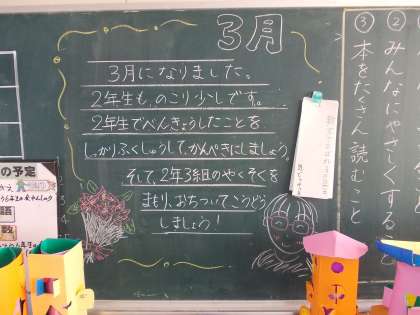 3月
3月になりました。
2年生も、のこり少しです。
2年生でべんきょうしたことを
しっかりふくしゅうして、かんぺきにしましょう。
そして、2年3組のやくそくを
まもり、おちついてこうどう
しましょう!
②みんなにやさしくすること
③本をたくさん読むこと
の予定
語
数